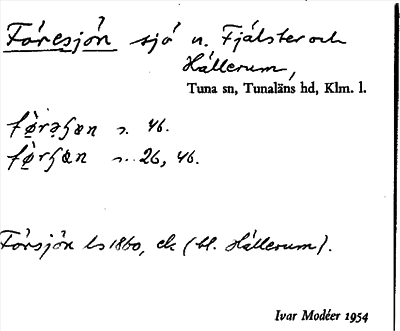 Föresjön sjö n. Fjälster och
Hällerum,
Tuna sn, Tunaläns hd, Klm. l.
n. 46.
n. 26, 46.
Försjön ls 1860, ek (bl. Hällerum).
Ivar Modéer 1954